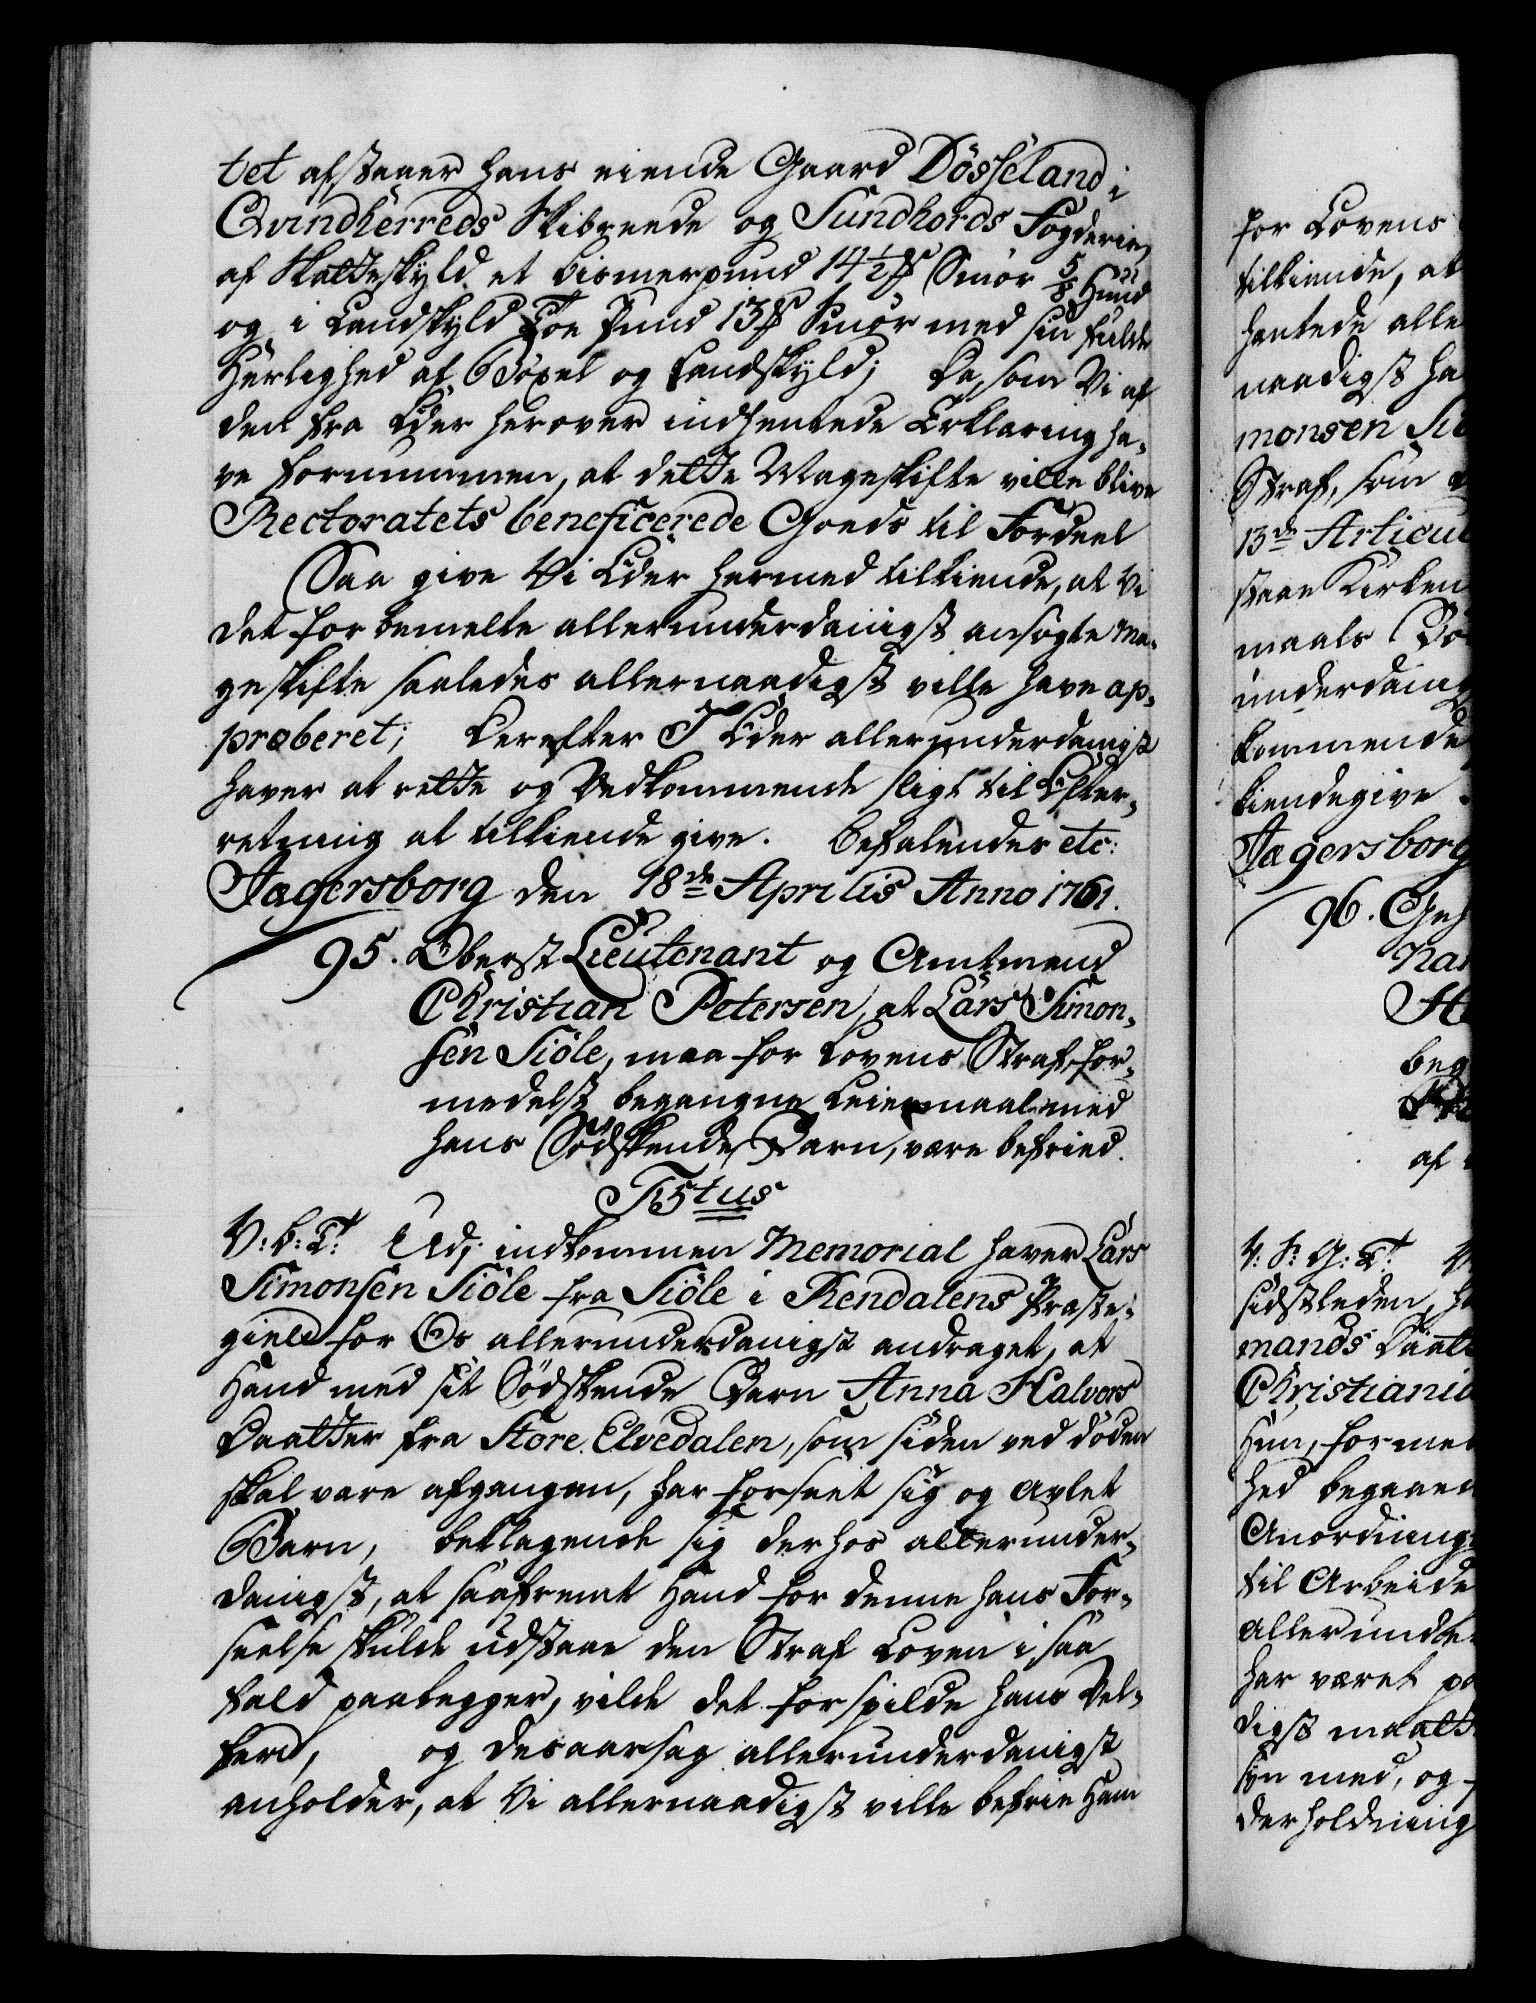 tet afstaaer hans eiende Gaard Dösseland i
Qvindherreds Skibreede og Sundhords Fogderie,
af Skatteskyld et bismerpund 14½ ℔ Smör 5/8 Hund
og i Landskyld Toe Pund 13 ℔ Smör med sin fulde
Herlighed af Böxel og Landskyld; Da, som Vi af
den fra Eder herover indhentede Erklæring ha-
ve fornummen, at dette Mageskifte ville blive
Rectoratets beneficerede Goeds til Fordeel
Saa give Vi Eder hermed tilkiende, at Vi
det forbemelte allerunderdanigst ansögte Ma-
geskifte saaledes allernaadigst ville have ap-
proberet; Derefter I Eder allerunderdanigst
haver at rette og Vedkommende sligt til Efter-
retning at tilkiende give. Befalendes etc:
Jægersborg den 18de Aprilis Anno 1761.
95. Oberst Lieutenant og Amtmand
Christian Petersen, at Lars Simon-
sen Siöle, maa for Lovens Straf for-
medelst begangne Leiermaal med
hans Södskende Barn, være befried.
F5tus
V: b: T: Udj indkommen Memorial haver Lars
Simonsen Siöle fra Siöle i Rendalens Præste-
gield for Os allerunderdanigst andraget, at
Hand med sit Södskende Barn Anna Halvors
Daatter fra Store Elvedalen, som siden ved döden
skal være afgangen, har forseet sig og avlet
Barn, beklagende sig derhos allerunder-
danigst, at saafremt Hand for denne hans For-
seelse skulde udstaae den Straf Loven i saa
fald paalegger, vilde det forspilde hans Vel-
færd, og desaarsag allerunderdanigst
anholder, at Vi allernaadigst ville befrie Ham
for Lovens
tilkiende, at
hentede alle
naadigst ha
monsen Siö
Straf, som
13de Articul
staae Kirken
maals Bö
underdanig
kommende
kiendegive
Jægersborg
96.
Han
beg
af
sidstleden, h
mands Daatt
Christiania
Hun, formed
hed begaaed
Anordning
til Arbeide
allerunde
har været pa
digst maatte
syn med, og
derholdning